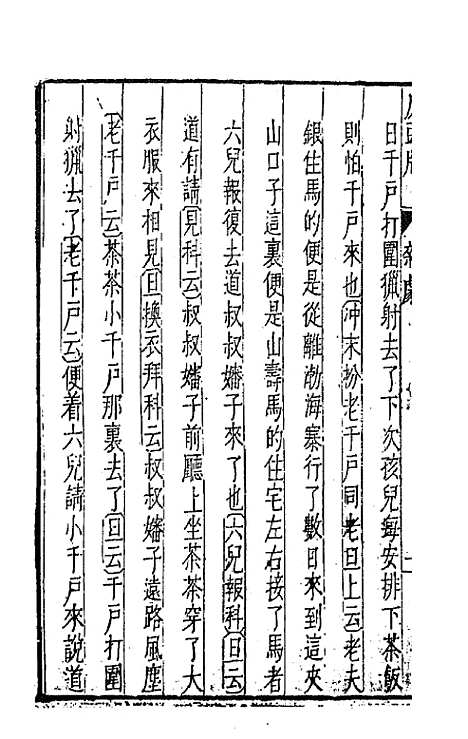 虎頭牌
雜劇
日千戶打圍獵射去了下次孩兒每安排下茶飯
則怕千戶來也沖末扮老千戶同老旦上云老夫
銀住馬的便是從離渤海寨行了數日來到這夾
山口子這裏便是山壽馬的住宅左右接了馬者
六兒報復去道叔叔嬸子來了也六兒報科旦云
道有請見科云叔叔嬸子前廳上坐茶茶穿了大
衣服來相見旦換衣拜科云叔叔嬸子遠路風塵
老千戶云茶茶小千戶那裏去了旦云千戶打圍
射獵去了老千戶云便着六兒請小千戶來說道